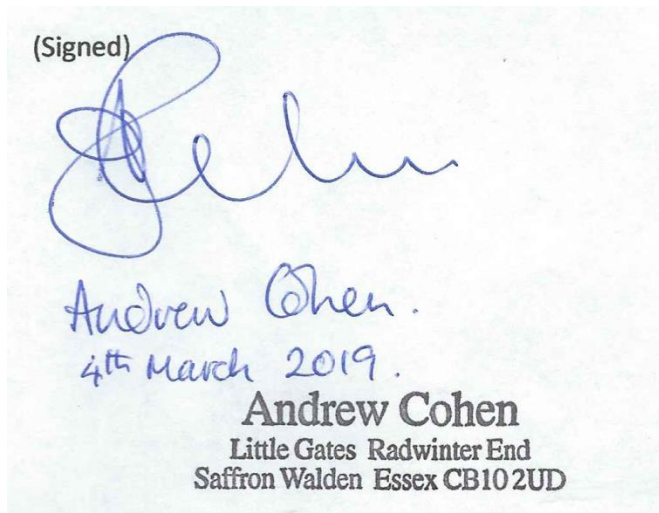 (Signed)
Andrew Cohen.
4th March 2019.
Andrew Cohen
Little Gates Radwinter End
Saffron Walden Essex CB10 2UD